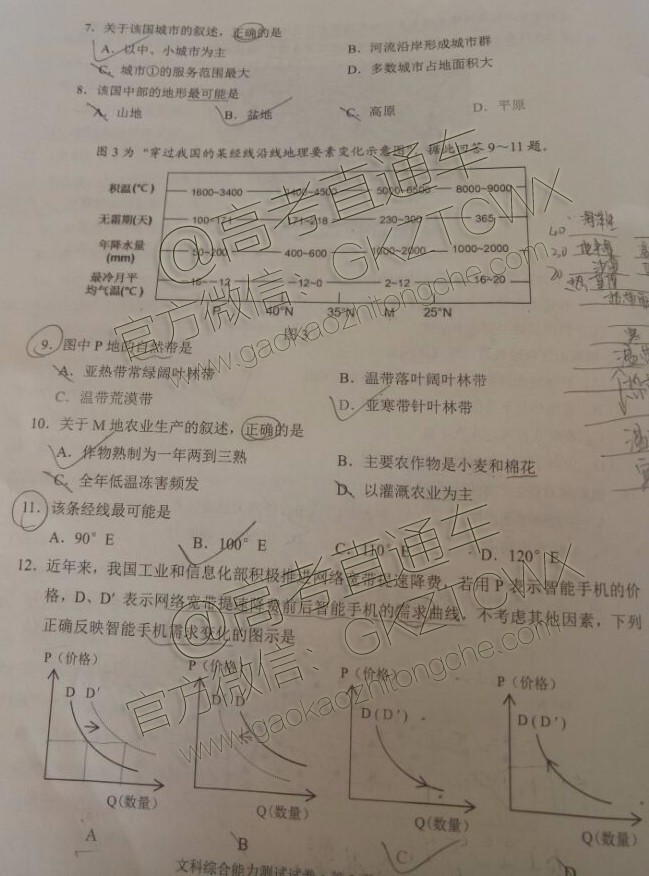 7. 关于该国城市的叙述，正确的是
A. 以中、小城市为主
B. 河流沿岸形成城市群
C. 城市①的服务范围最大
D. 多数城市占地面积大
8. 该国中部的地形最可能是
A. 山地 B. 盆地 C. 高原 D. 平原
图3为“穿过我国的某经线沿线地理要素变化示意图”，据此回答9～11题。
积温(℃) 1600~3400 3400~4500 5000~6500 8000~9000
无霜期(天) 100~171 171~218 230~300 365
年降水量(mm) 50~200 400~600 1000~2000 1000~2000
最冷月平均气温(℃) -12~0 2~12 16~20
P 40°N 35°N M 25°N
图3
9. 图中P地的自然带是
A. 亚热带常绿阔叶林带
B. 温带落叶阔叶林带
C. 温带荒漠带
D. 亚寒带针叶林带
10. 关于M地农业生产的叙述，正确的是
A. 作物熟制为一年两到三熟
B. 主要农作物是小麦和棉花
C. 全年低温冻害频发
D. 以灌溉农业为主
11. 该条经线最可能是
A. 90°E B. 100°E C. 110°E D. 120°E
12. 近年来，我国工业和信息化部积极推进网络宽带提速降费，若用P表示智能手机的价
格，D、D′表示网络宽带提速降费前后智能手机的需求曲线，不考虑其他因素，下列
正确反映智能手机需求变化的图示是
P(价格) P(价格) P(价格) P(价格)
D D′ D′ D D(D′) D(D′)
Q(数量) Q(数量) Q(数量) Q(数量)
A B C D
文科综合能力测试试卷
@高考直通车
官方微信：GKZTCWX
www.gaokaozhitongche.com
@高考直通车
官方微信：GKZTCWX
www.gaokaozhitongche.com